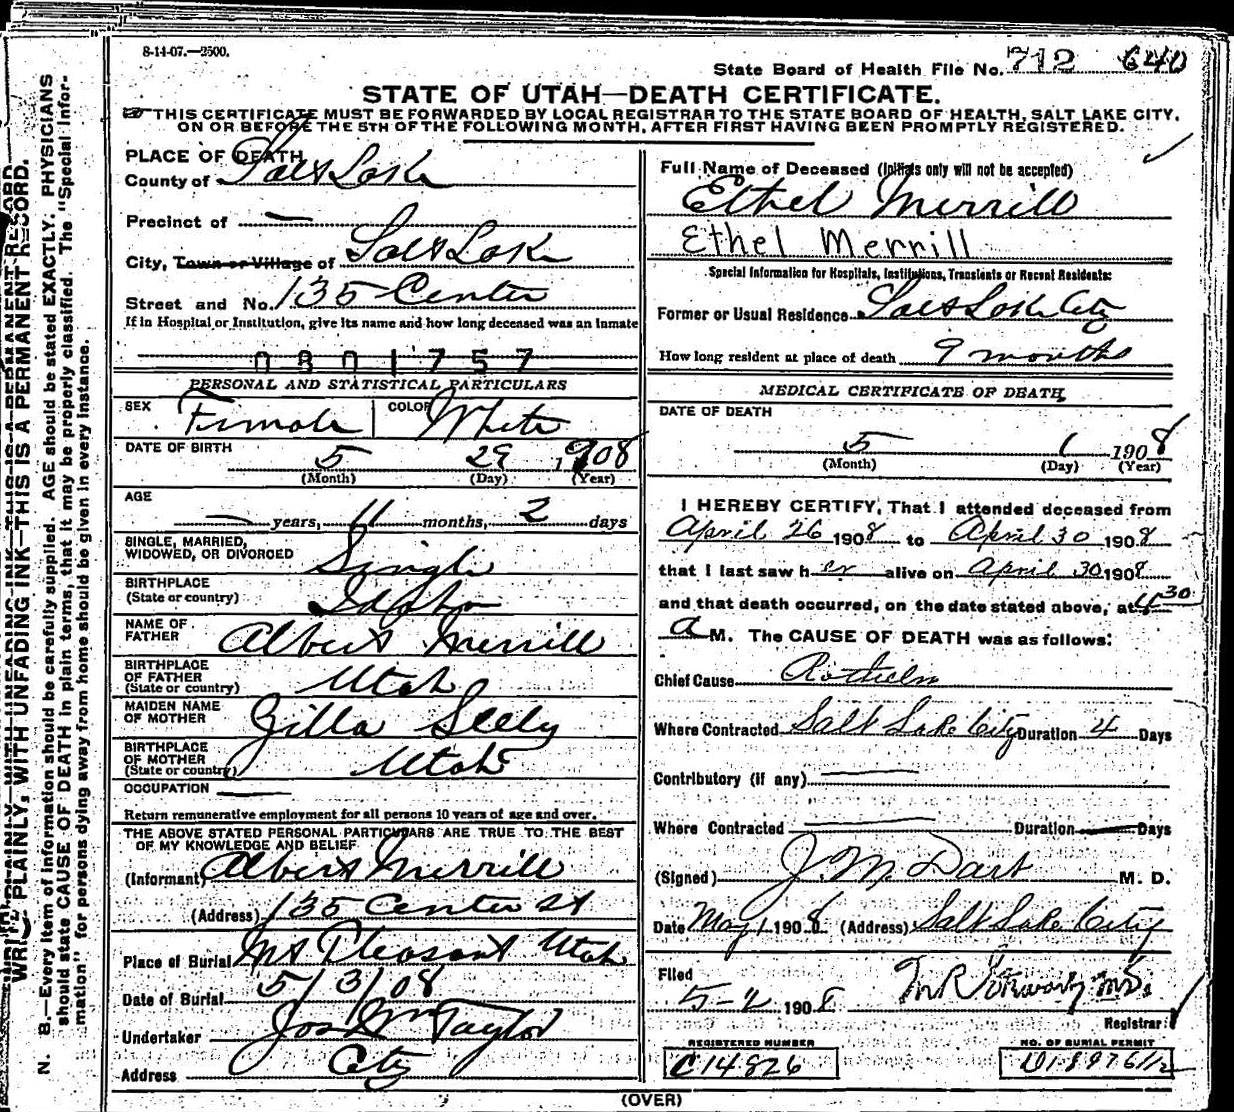 8-14-07.—2500.
State Board of Health File No. 712 640
STATE OF UTAH—DEATH CERTIFICATE.
THIS CERTIFICATE MUST BE FORWARDED BY LOCAL REGISTRAR TO THE STATE BOARD OF HEALTH, SALT LAKE CITY,
ON OR BEFORE THE 5TH OF THE FOLLOWING MONTH, AFTER FIRST HAVING BEEN PROMPTLY REGISTERED.
WRITE PLAINLY, WITH UNFADING INK—THIS IS A PERMANENT RECORD.
N. B.—Every item of information should be carefully supplied. AGE should be stated EXACTLY. PHYSICIANS
should state CAUSE OF DEATH in plain terms, that it may be properly classified. The "Special Infor-
mation" for persons dying away from home should be given in every instance.
PLACE OF DEATH
County of Salt Lake
Precinct of —
City, Town or Village of Salt Lake
Street and No. 135 Center
If in Hospital or Institution, give its name and how long deceased was an inmate
0801757
PERSONAL AND STATISTICAL PARTICULARS
SEX Female COLOR White
DATE OF BIRTH 5 29 1908
(Month) (Day) (Year)
AGE
— years, 11 months, 2 days
SINGLE, MARRIED,
WIDOWED, OR DIVORCED Single
BIRTHPLACE
(State or country) Idaho
NAME OF
FATHER Albert Merrill
BIRTHPLACE
OF FATHER
(State or country) Utah
MAIDEN NAME
OF MOTHER Zilla Seely
BIRTHPLACE
OF MOTHER
(State or country) Utah
OCCUPATION —
Return remunerative employment for all persons 10 years of age and over.
THE ABOVE STATED PERSONAL PARTICULARS ARE TRUE TO THE BEST
OF MY KNOWLEDGE AND BELIEF
(Informant) Albert Merrill
(Address) 135 Center St
Place of Burial Mt Pleasant Utah
Date of Burial 5/3/08
Undertaker Jos Wm Taylor
Address City
Full Name of Deceased (Initials only will not be accepted)
Ethel Merrill
Ethel Merrill
Special Information for Hospitals, Institutions, Transients or Recent Residents:
Former or Usual Residence Salt Lake City
How long resident at place of death 9 months
MEDICAL CERTIFICATE OF DEATH
DATE OF DEATH
5 1 1908
(Month) (Day) (Year)
I HEREBY CERTIFY, That I attended deceased from
April 26 1908 to April 30 1908
that I last saw her alive on April 30 1908
and that death occurred, on the date stated above, at 4 30
A M. The CAUSE OF DEATH was as follows:
Chief Cause Rotheln
Where Contracted Salt Lake City Duration 4 Days
Contributory (if any) —
Where Contracted — Duration — Days
(Signed) J. M. Dart M. D.
Date May 1 1908 (Address) Salt Lake City
Filed
5-2 1908
Registrar
REGISTERED NUMBER
C14826
NO. OF BURIAL PERMIT
(OVER)